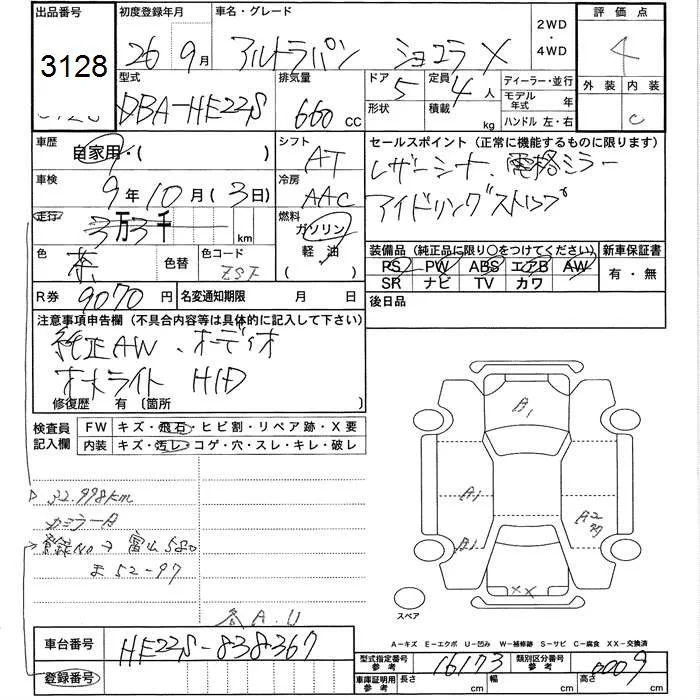 出品番号 初度登録年月 車名・グレード 2WD・4WD 評価点
3128 26 9月 アルトラパン ショコラ X 4
型式 排気量 ドア 5 定員 4人 ディーラー・並行 外装 内装
DBA-HE22S 660 cc 形状 積載 kg モデル年式 年 ハンドル 左・右 C
車歴 シフト セールスポイント (正常に機能するものに限ります)
自家用・( ) AT レザーシート 電格ミラー
車検 冷房 アイドリングストップ
9年10月(3日) AAC
走行 3万3千 km 燃料 ガソリン 軽油 ( )
装備品 (純正品に限り○をつけてください) 新車保証書
色 茶 色替 色コード ZSF
PS PW ABS エアB AW 有・無
SR ナビ TV カワ
R券 9070円 名変通知期限 月 日
後日品
注意事項申告欄 (不具合内容等は具体的に記入して下さい)
純正AW、オーディオ
オートライト HID
修復歴 有 〔箇所 〕
検査員記入欄 FW キズ・飛石・ヒビ割・リペア跡・X要
内装 キズ・汚レ・コゲ・穴・スレ・キレ・破レ
32.998km
登録No→富山580
ま 52-97
A1
A1
A2
B1
XX
スペア
A.U
車台番号 HE22S-838367
登録番号
A−キズ E−エクボ U−凹み W−補修跡 S−サビ C−腐食 XX−交換済
型式指定番号 参考 16173 類別区分番号 参考 0009
車庫証明用 参考 長さ cm 幅 cm 高さ cm